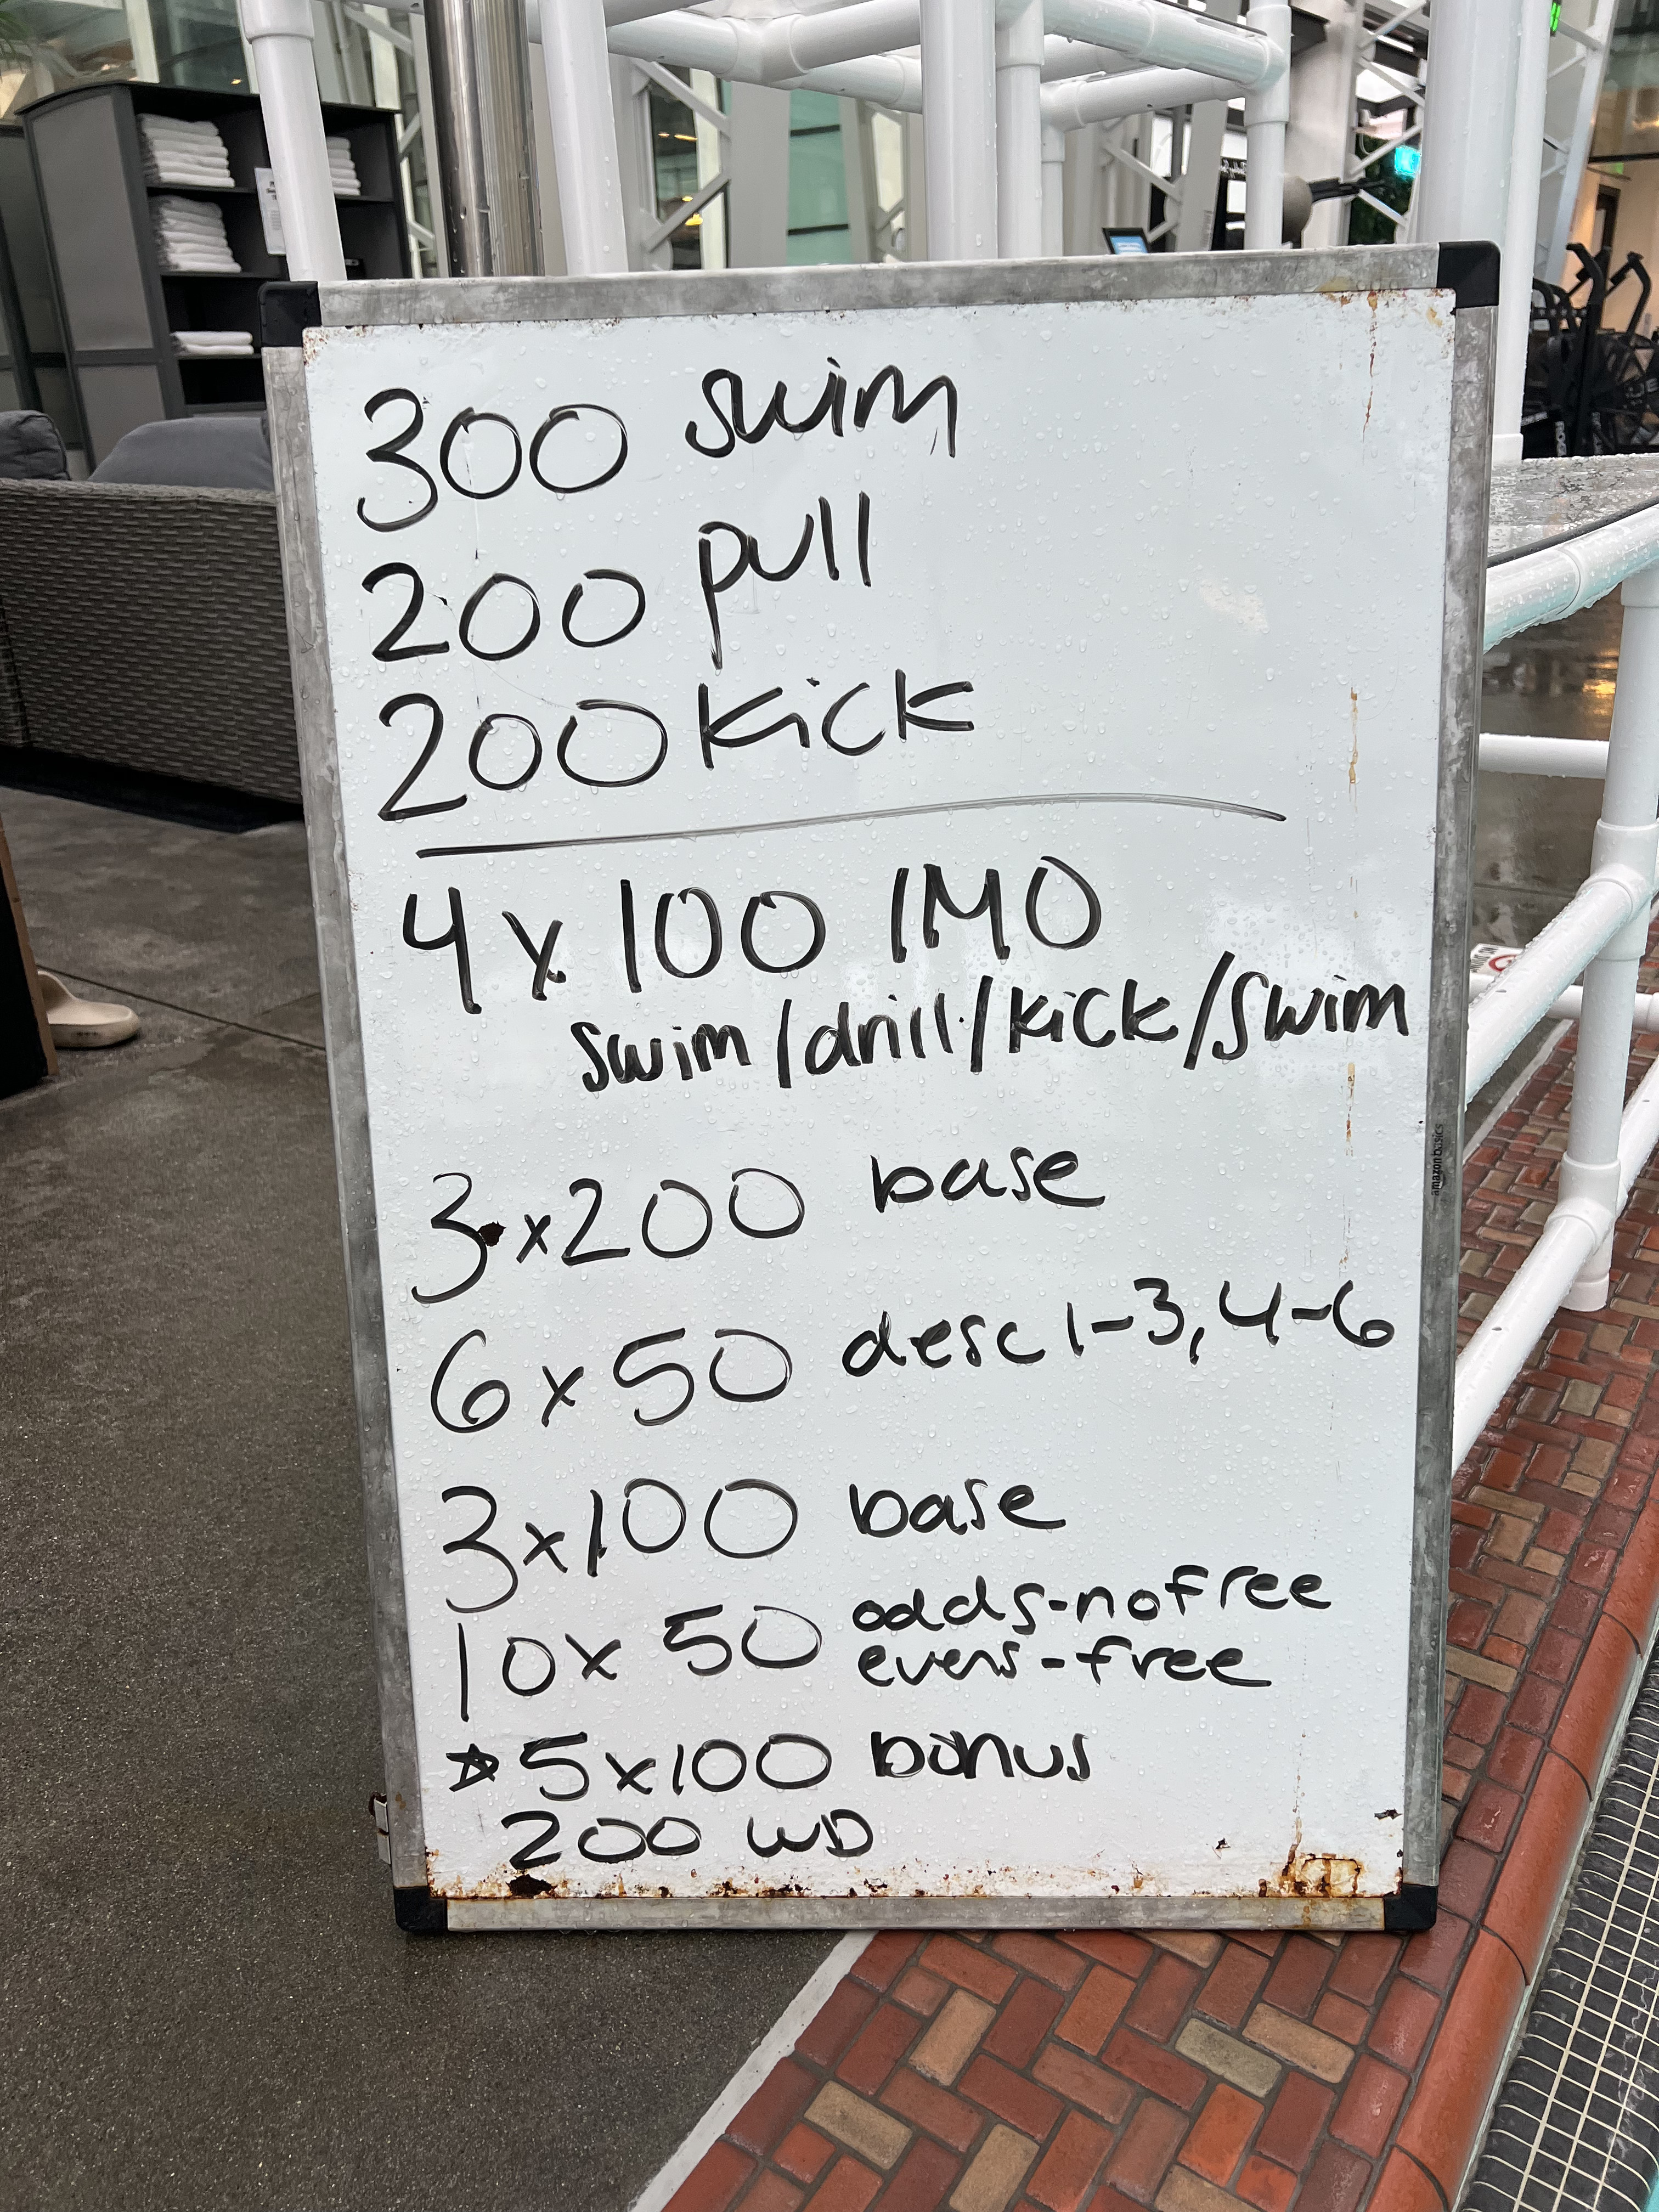 300 swim
200 pull
200 kick
4 x 100 IMO
swim/drill/kick/swim
3 x 200 base
6 x 50 desc 1-3, 4-6
3 x 100 base
10 x 50 odds-no free
evens-free
☆ 5 x 100 bonus
200 WD
amazonbasics